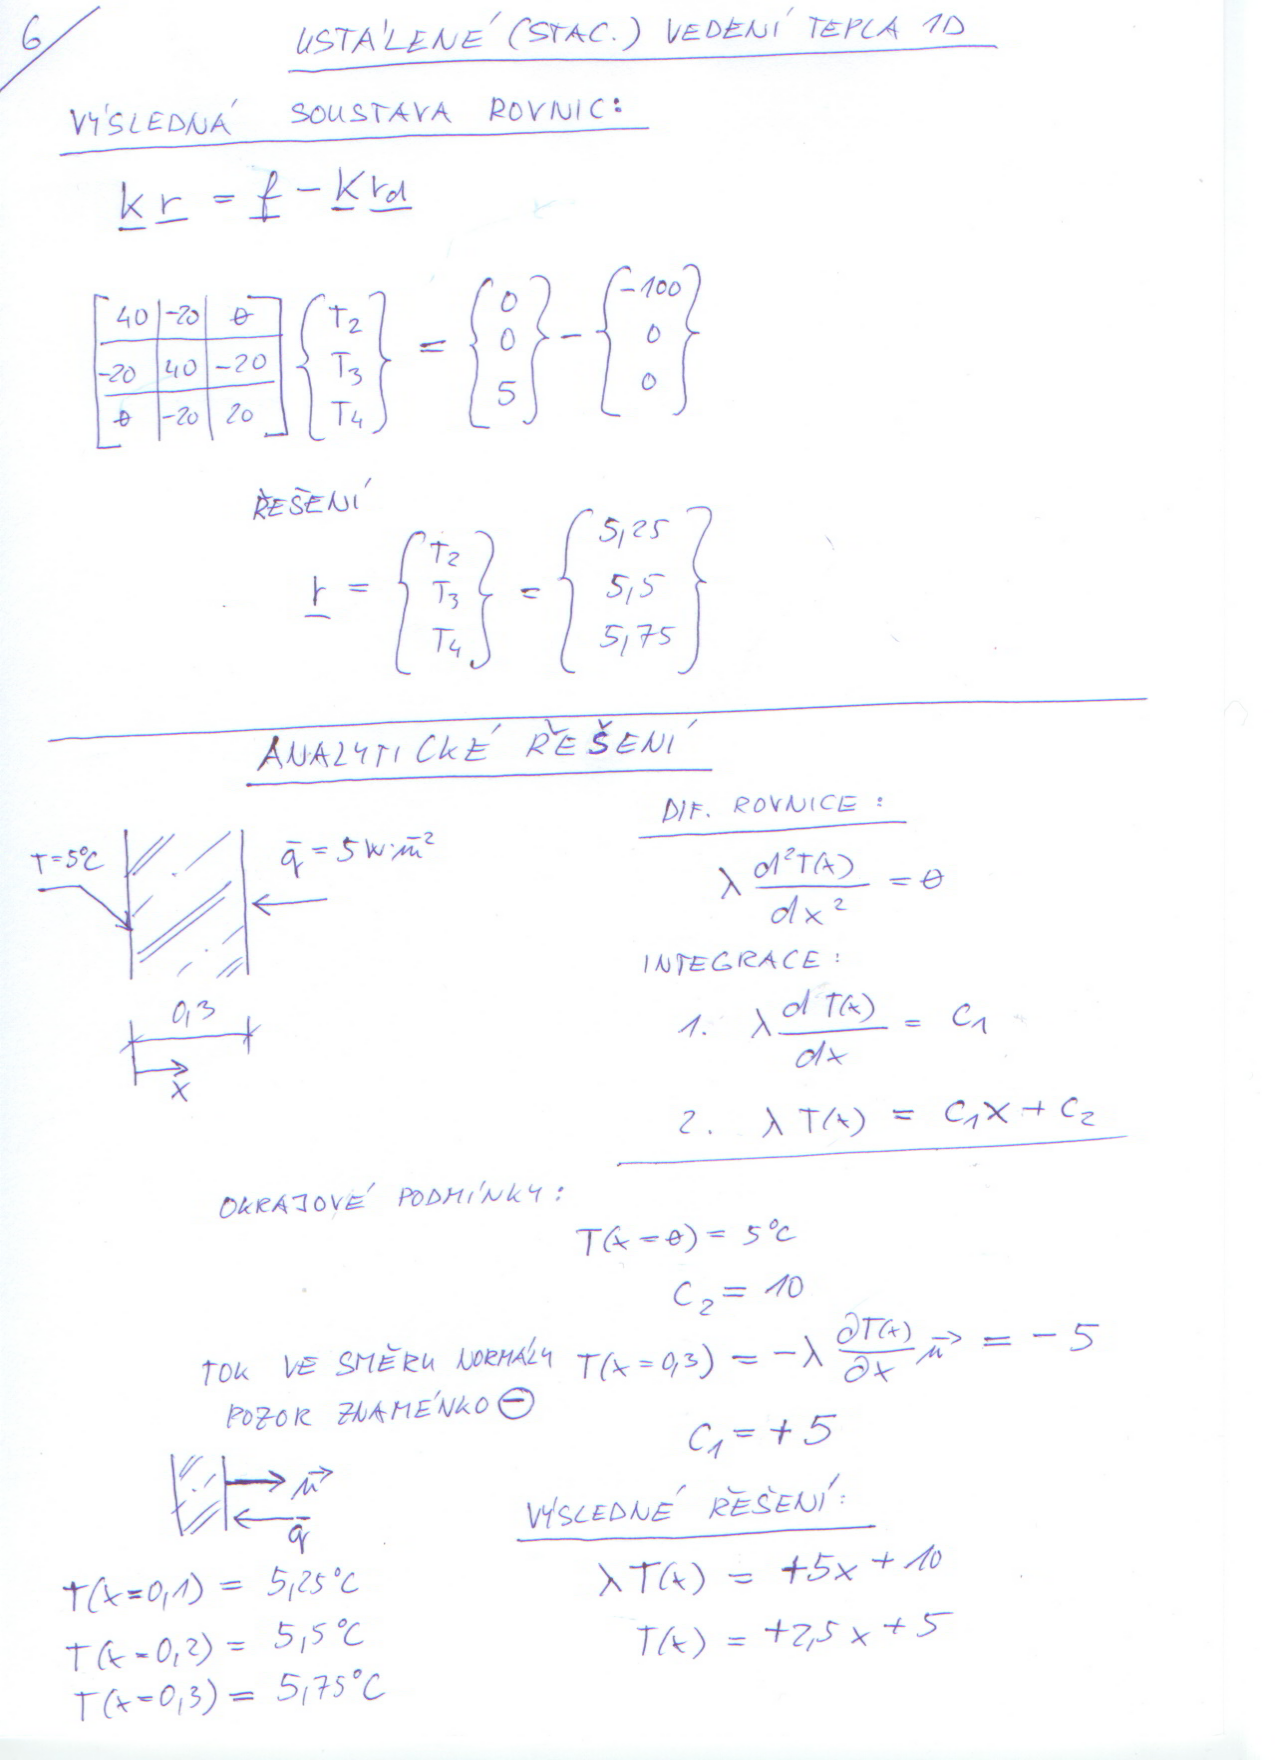 6
USTÁLENÉ (STAC.) VEDENÍ TEPLA 1D
VÝSLEDNÁ SOUSTAVA ROVNIC:
K r = f - K rd
[40 | -20 | 0] {T2} = {0} - {-100}
[-20 | 40 | -20] {T3} = {0} - {0}
[0 | -20 | 20] {T4} = {5} - {0}
ŘEŠENÍ
r = {T2} = {5,25}
{T3} {5,5}
{T4} {5,75}
ANALYTICKÉ ŘEŠENÍ
T=5°C
q̄ = 5 W·m⁻²
0,3
x
DIF. ROVNICE:
λ d²T(x)/dx² = 0
INTEGRACE:
1. λ dT(x)/dx = C1
2. λ T(x) = C1x + C2
OKRAJOVÉ PODMÍNKY:
T(x=0) = 5°C
C2 = 10
TOK VE SMĚRU NORMÁLY T(x=0,3) = -λ ∂T(x)/∂x n⃗ = -5
POZOR ZNAMÉNKO ⊖
C1 = +5
n⃗
q̄
VÝSLEDNÉ ŘEŠENÍ:
λT(x) = +5x + 10
T(x) = +2,5x + 5
T(x=0,1) = 5,25°C
T(x=0,2) = 5,5°C
T(x=0,3) = 5,75°C